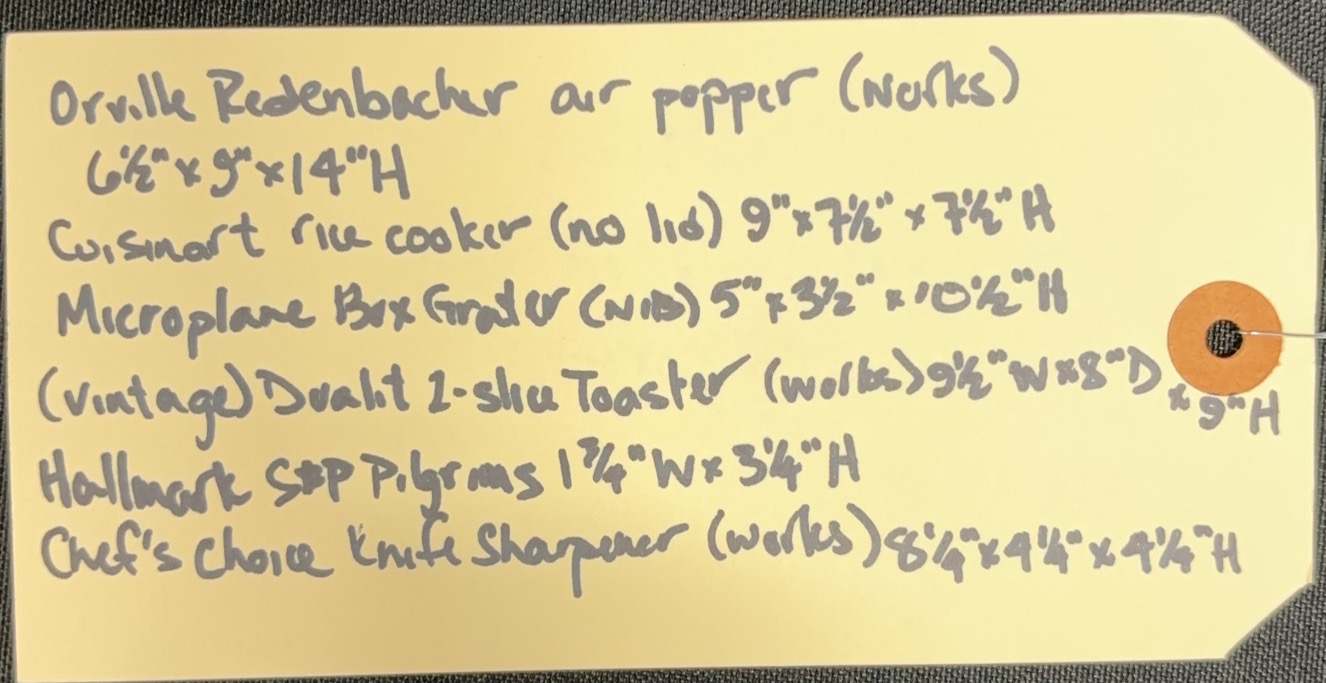 Orville Redenbacher air popper (works)
6½" x 9" x 14"H
Cuisinart rice cooker (no lid) 9" x 7½" x 7½" H
Microplane Box Grater (NIB) 5" x 3½" x 10½"H
(vintage) Dualit 2-slice Toaster (works) 9½"W x 8"D
x 9"H
Hallmark S&P Pilgrims 1¾"W x 3¼"H
Chef's Choice Knife Sharpener (works) 8¼" x 4¼" x 4¼"H